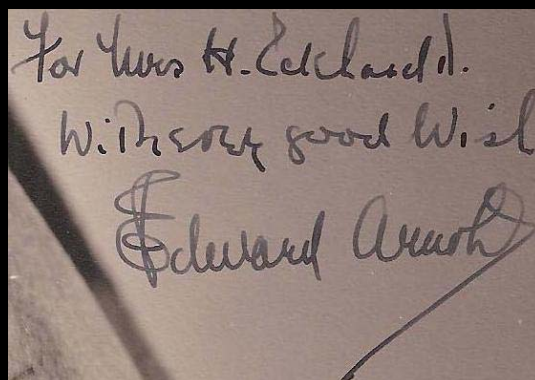 For Miss H. Eckhardt.
With every good Wish
Edward Arnold